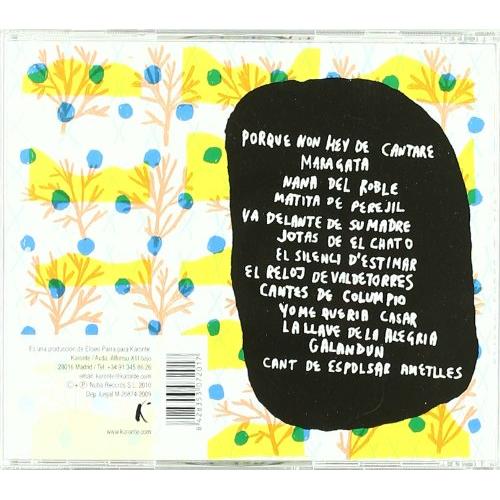 PORQUE NON HEY DE CANTARE
MARAGATA
NANA DEL ROBLE
MATITA DE PEREJIL
VA DELANTE DE SU MADRE
JOTAS DE EL CHATO
EL SILENCI D'ESTIMAR
EL RELOJ DE VALDETORRES
CANTES DE COLUMPIO
YO ME QUERIA CASAR
LA LLAVE DE LA ALEGRIA
GALANDUN
CANT DE ESPOLSAR AMETLLES
Es una producción de Eliseo Parra para Karonte
Karonte / Avda. Alfonso XIII bajo
28016 Madrid / Tel. +34 91 345 86 26
email: karonte@karonte.com
© + ℗ Nuba Records S.L. 2010
Dep. Legal M-26874-2009
K
www.karonte.com